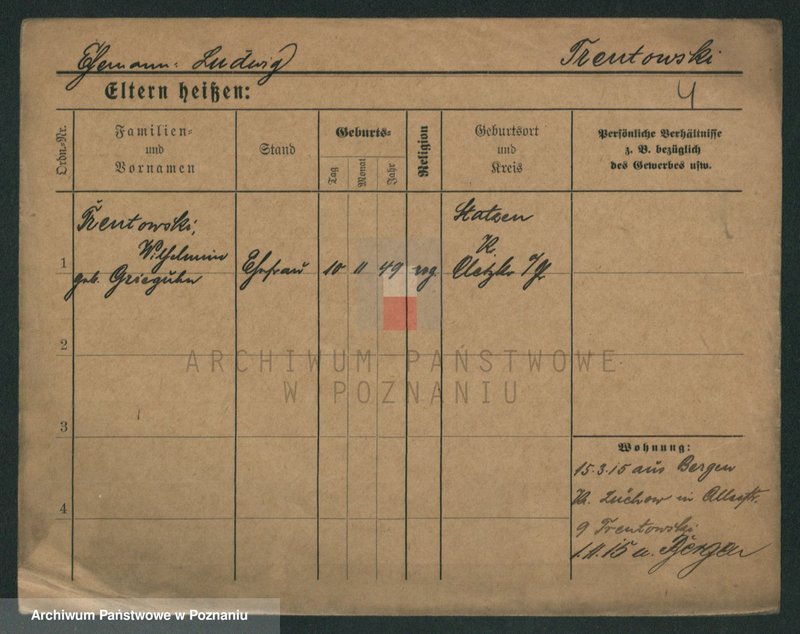 Ehemann: Ludwig Trentowski
Eltern heißen: 4
Ordn.-Nr.
Familien-
und
Vornamen
Stand
Geburts-
Tag
Monat
Jahr
Religion
Geburtsort
und
Kreis
Persönliche Verhältnisse
z. B. bezüglich
des Gewerbes usw.
1
Trentowski,
Wilhelmine
geb. Grieguhn
Ehefrau
10
11
49
evg.
Statzen
Kr.
Oletzko
2
3
4
Wohnung:
15.3.15 aus Bergen
Kr. Lüchow in
9 Trentowski
1.11.15 n. Bergen
ARCHIWUM PAŃSTWOWE
W POZNANIU
Archiwum Państwowe w Poznaniu